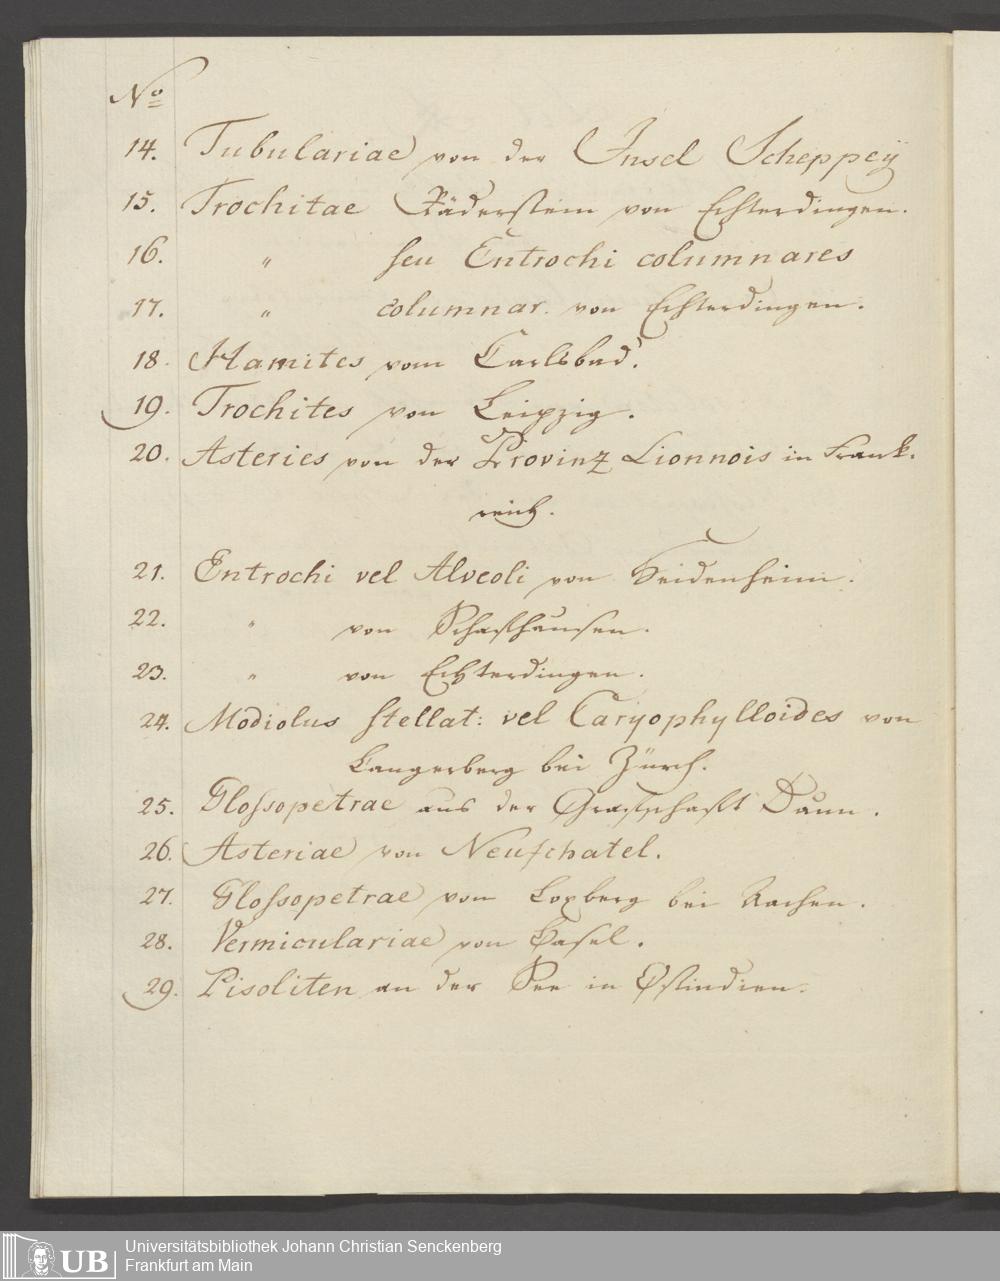 No
14. Tubulariae von der Insel Scheppeÿ
15. Trochitae Räderstein von Echterdingen.
16. " seu Entrochi columnares
17. " columnar. von Echterdingen.
18. Hamites vom Carlsbad.
19. Trochites von Leipzig.
20. Asteries von der Provinz Lionnois in Frank-
reich.
21. Entrochi vel Alveoli von Heidenheim.
22. " von Schafhausen.
23. " von Echterdingen.
24. Modiolus stellat: vel Caryophylloides von
Langerberg bei Zürch.
25. Glossopetrae aus der Grafschaft Daun.
26. Asteriae von Neufchatel.
27. Glossopetrae vom bei Aachen.
28. Vermiculariae von Basel.
29. Pisoliten an der See in Ostindien.
UB
Universitätsbibliothek Johann Christian Senckenberg
Frankfurt am Main